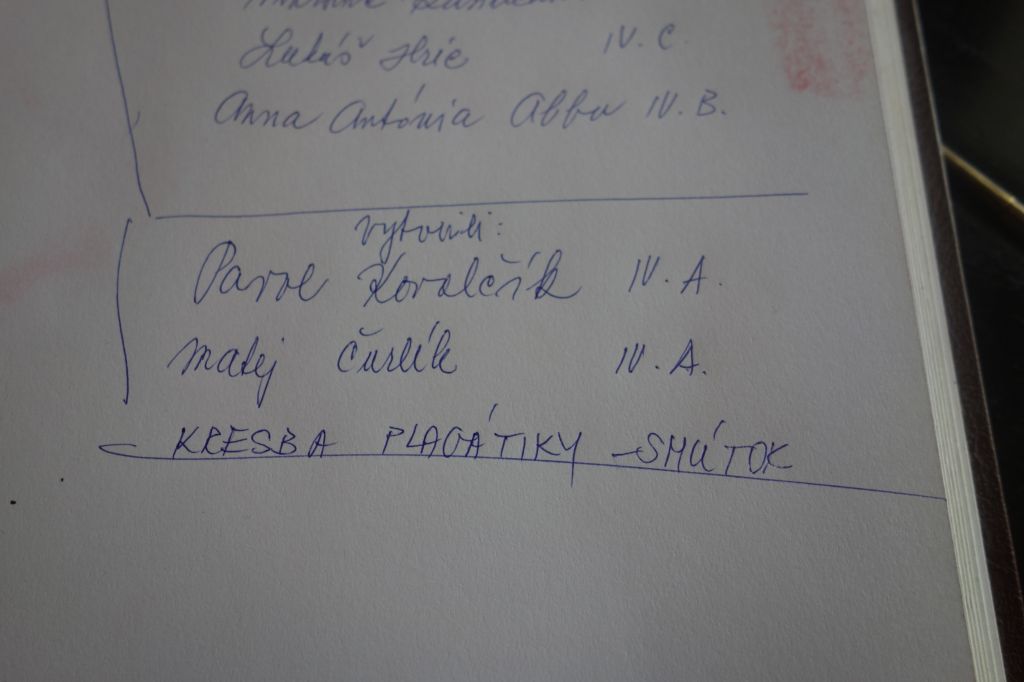 Lukáš Hric IV. C
Anna Antónia Abbu IV. B.
vytvorili:
Pavol Kovalčík IV. A.
Matej Čurlík IV. A.
KRESBA PLAGÁTIKY - SMÚTOK